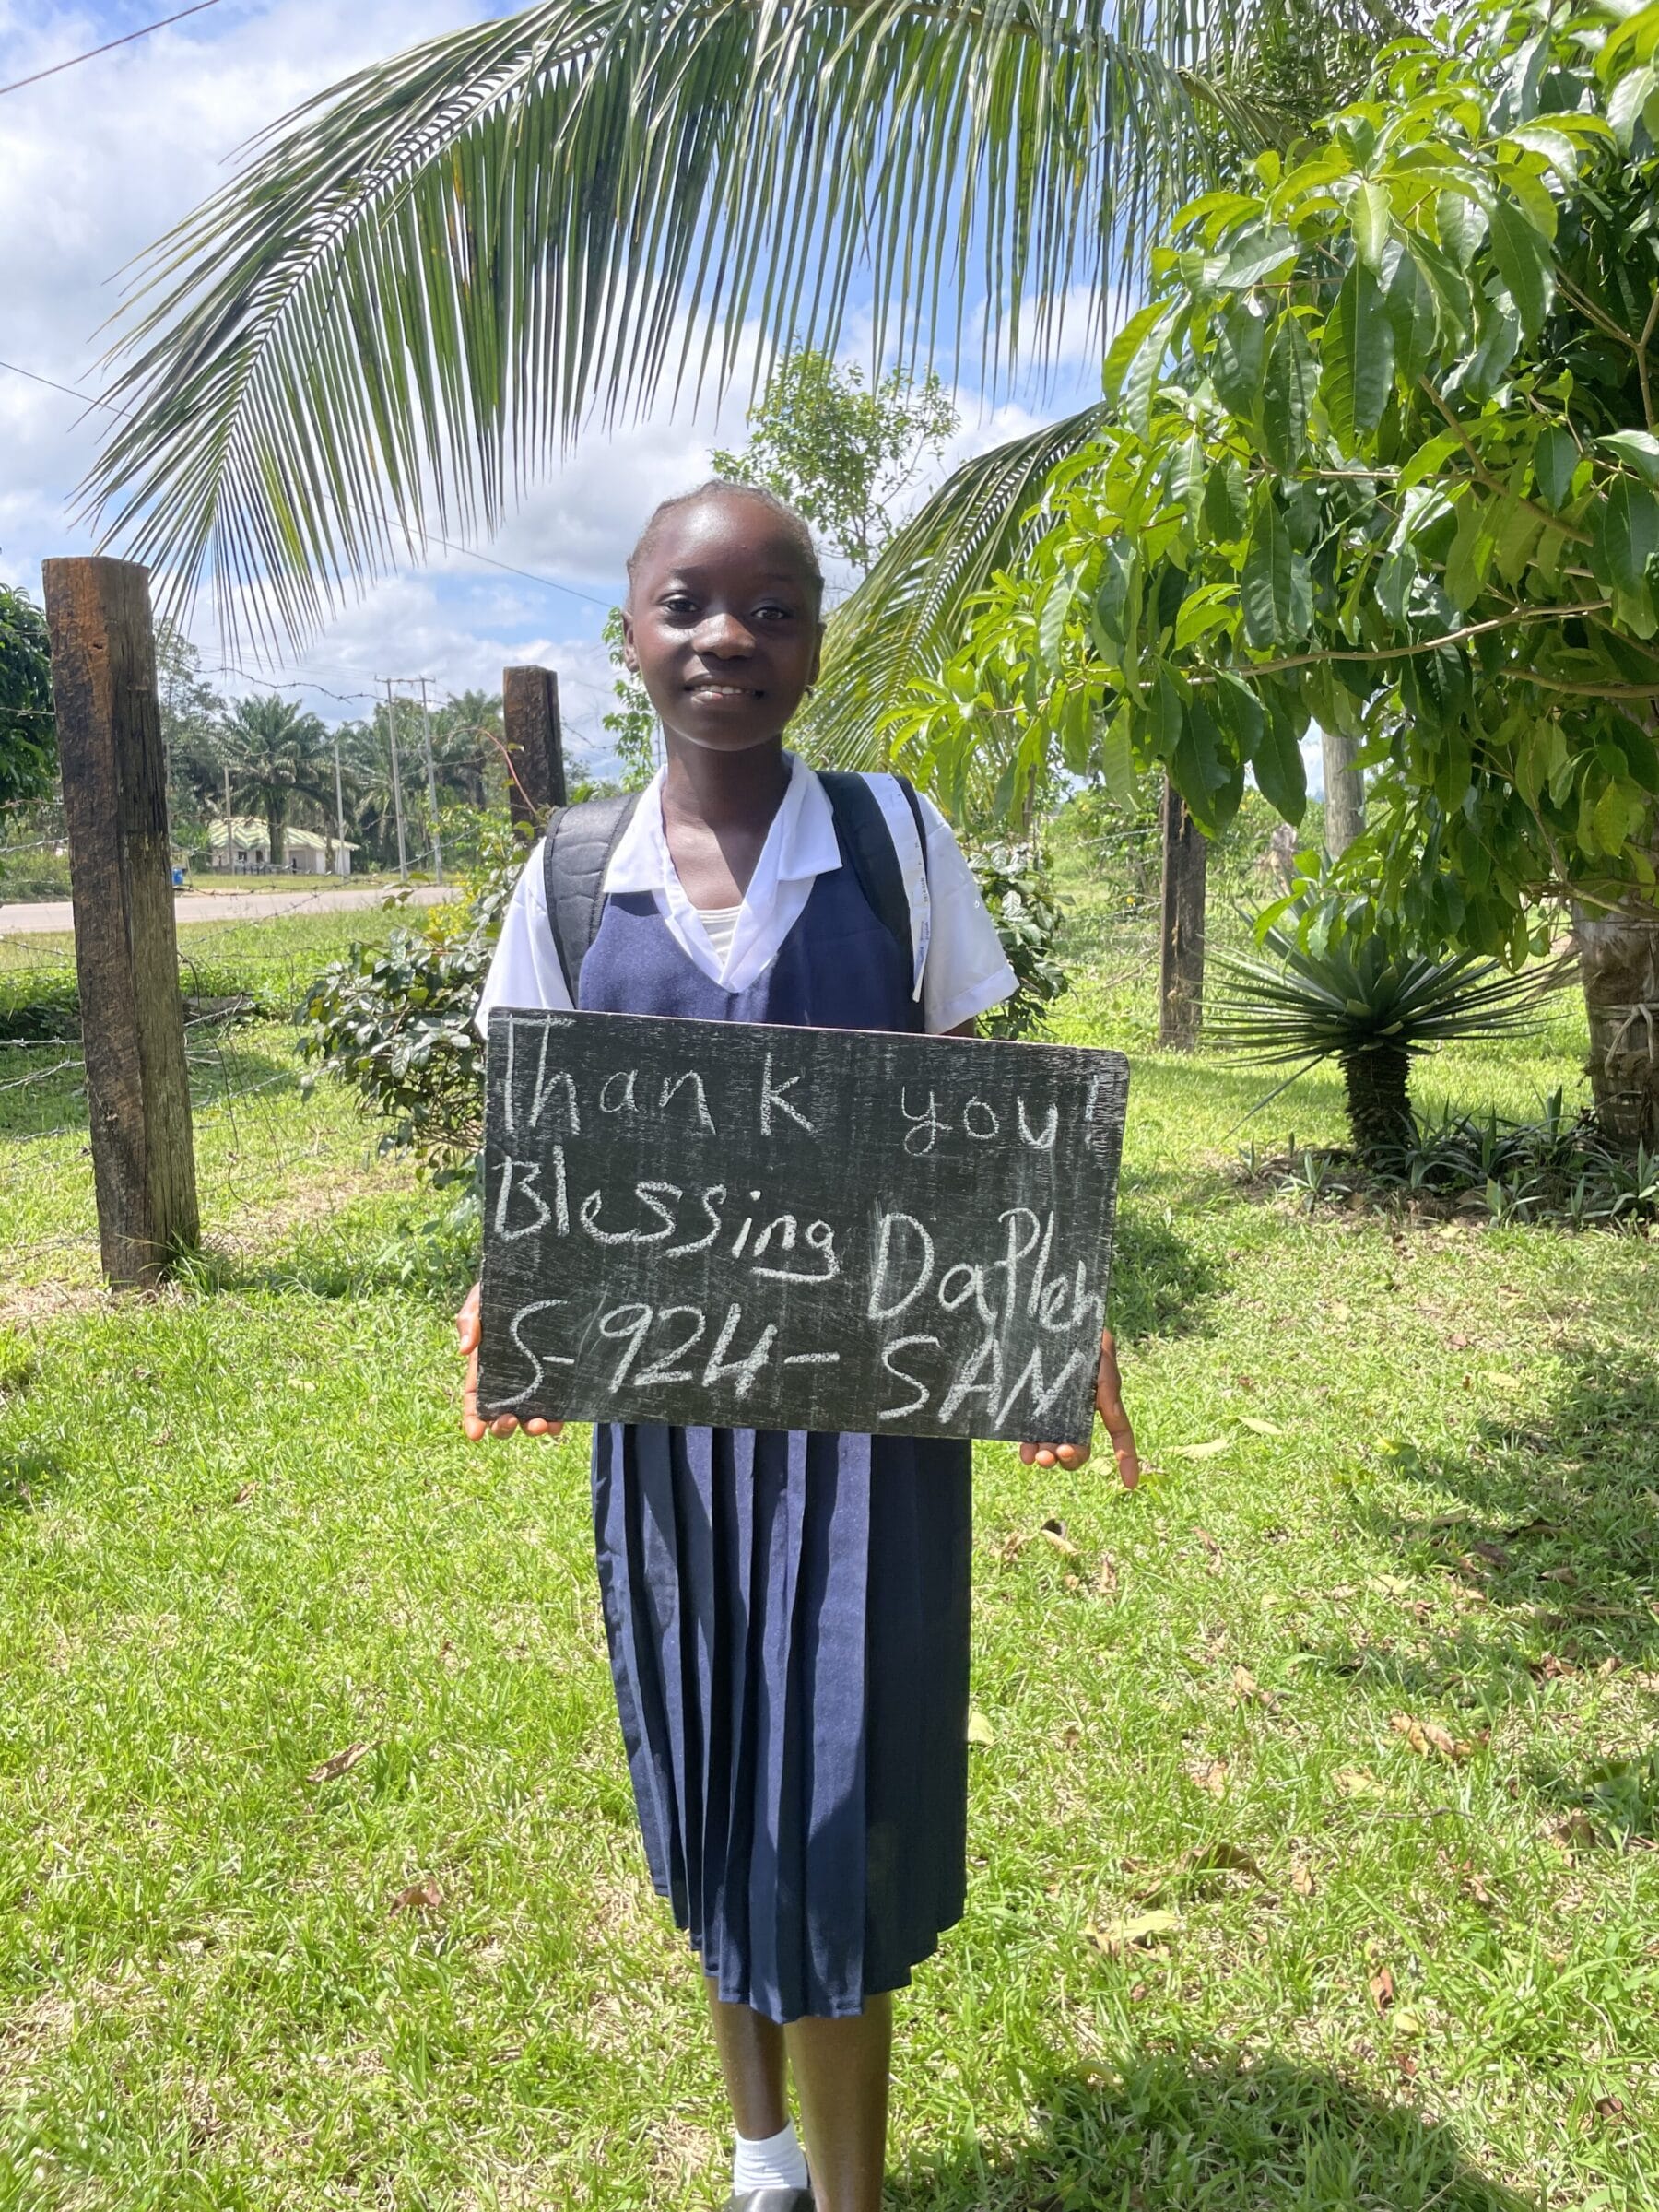 Thank you!
Blessing DaPleh
S-924-SAN